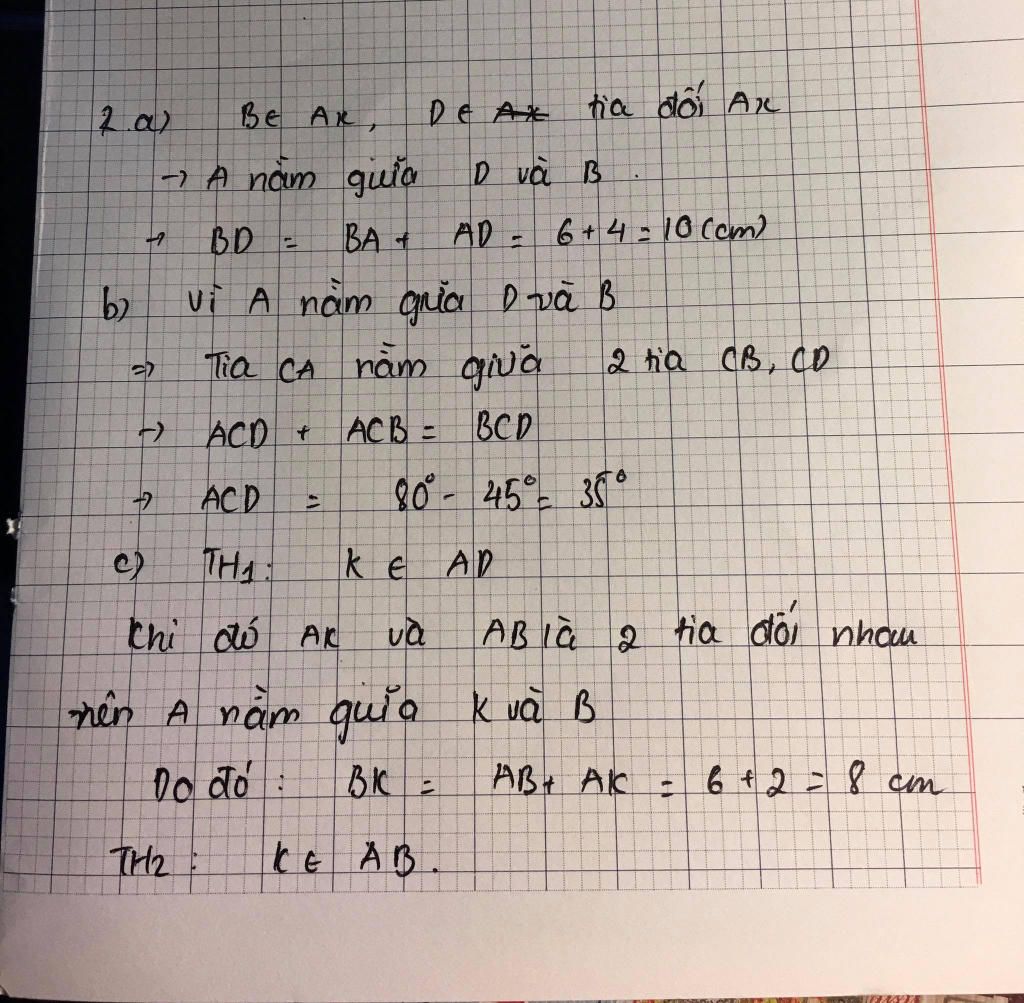 2.a) B∈ Ax, D∈ Ax tia đối Ax
→ A nằm giữa D và B.
→ BD = BA + AD = 6+4=10(cm)
b) Vì A nằm giữa D và B
=> Tia CA nằm giữa 2 tia CB, CD
→ ACD + ACB = BCD
→ ACD = 80° - 45° = 35°
c) TH1: K ∈ AD
Khi đó AK và AB là 2 tia đối nhau
nên A nằm giữa K và B
Do đó: BK = AB + AK = 6 + 2 = 8 cm
TH2: K ∈ AB.